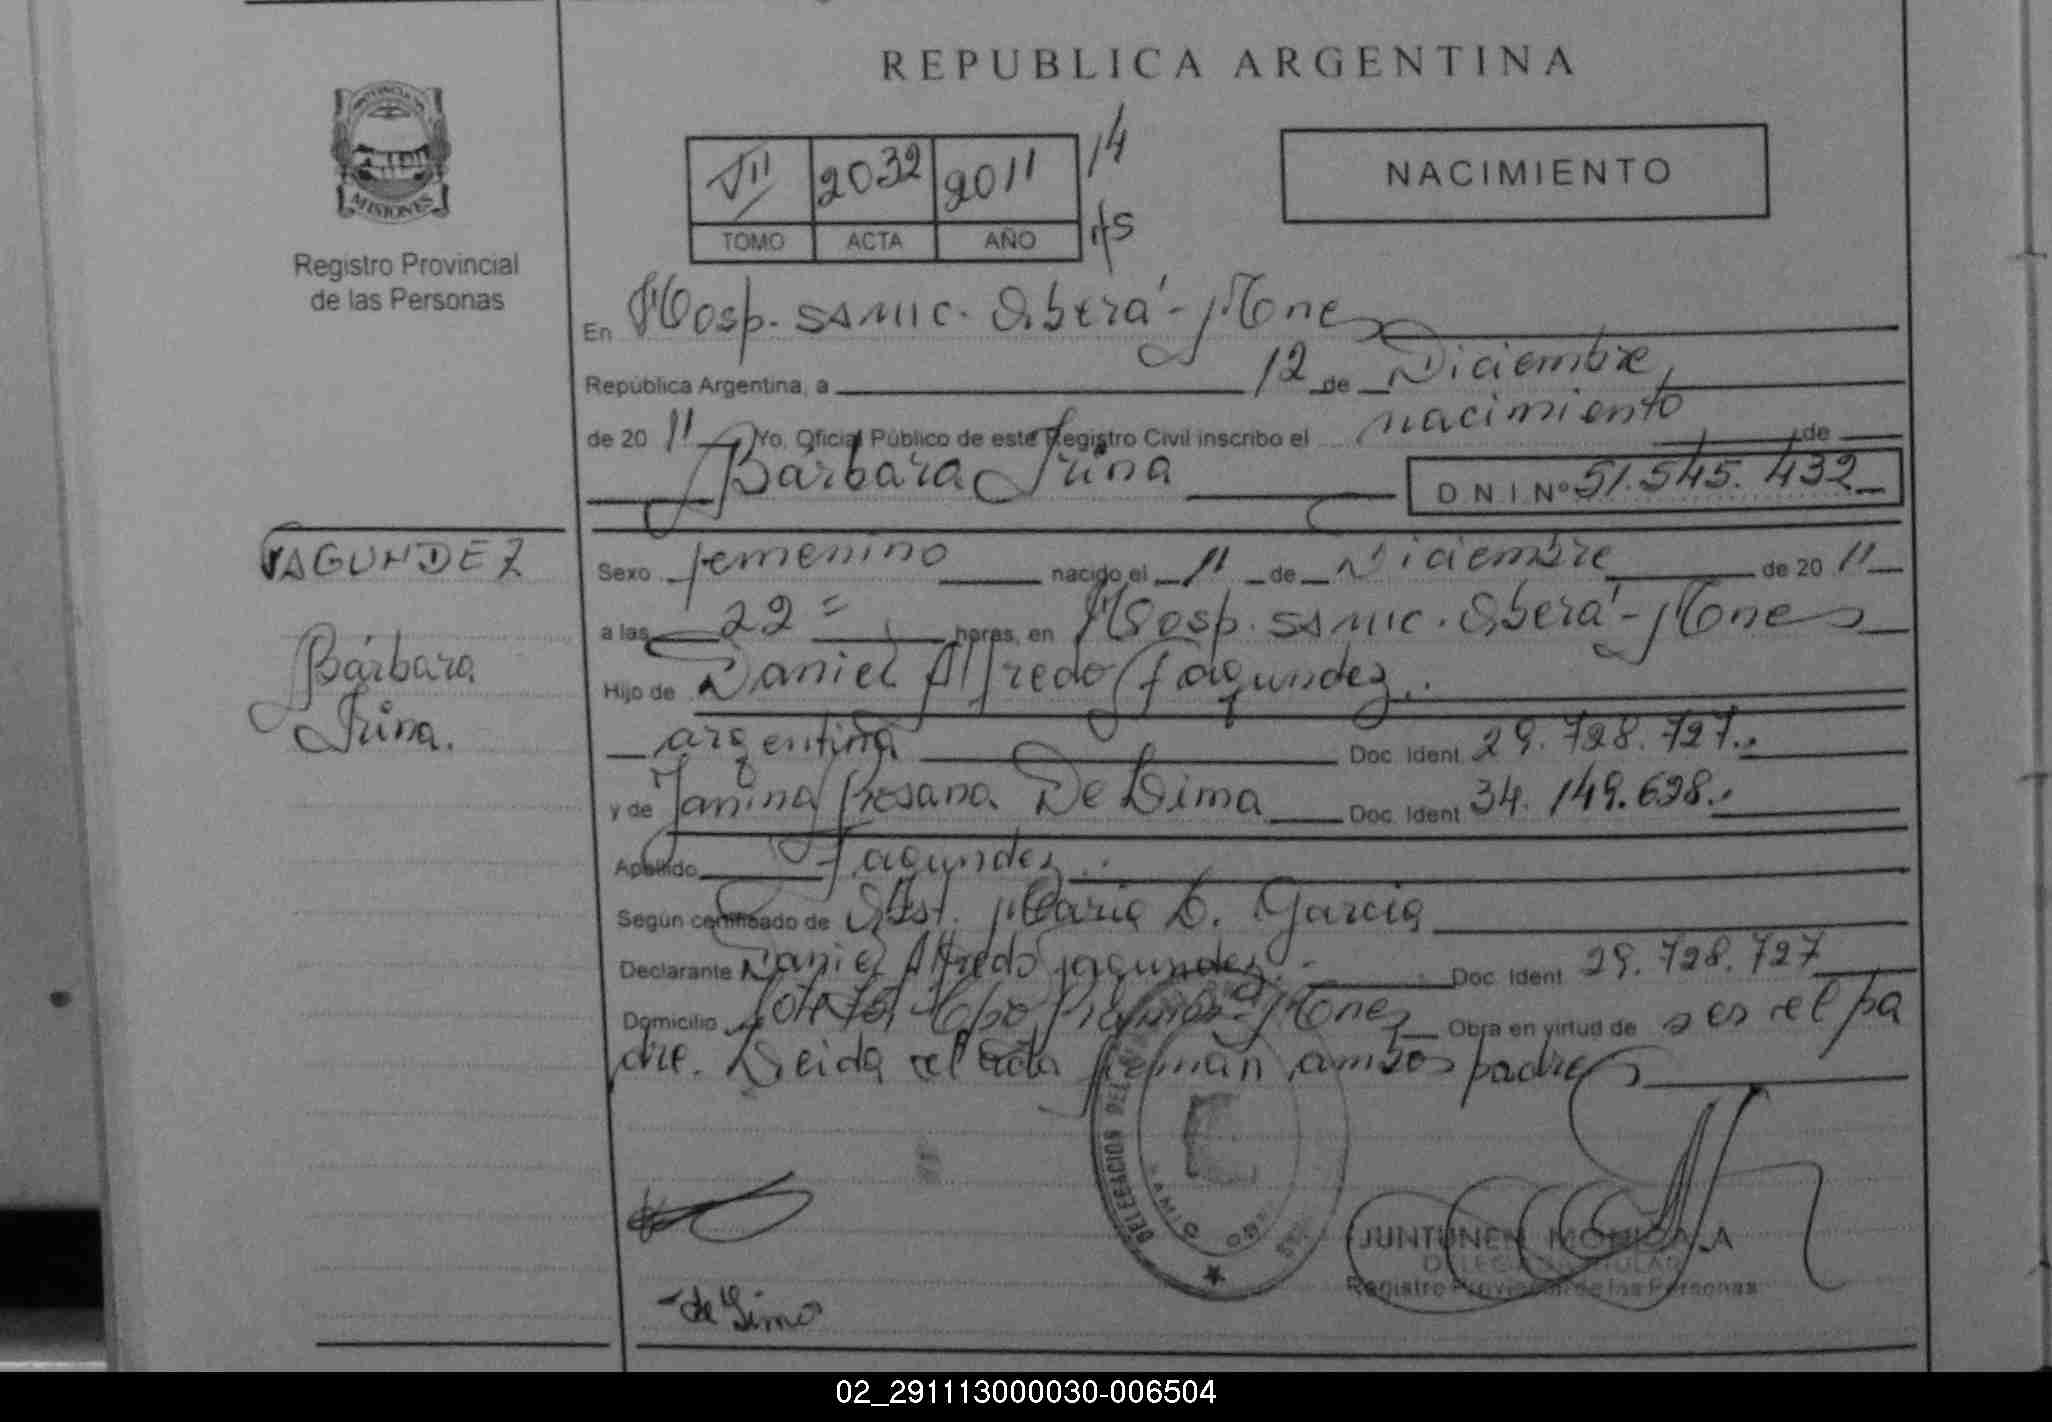 REPUBLICA ARGENTINA
PROVINCIA DE
MISIONES
Registro Provincial
de las Personas
VII 2032 2011 14
TOMO ACTA AÑO
NACIMIENTO
En Hosp. SAMIC. Oberá - Mones
República Argentina, a 12 de Diciembre
de 20 11 Yo, Oficial Público de este Registro Civil inscribo el nacimiento de
Bárbara Irina DNI Nº 51.545.432
FAGUNDEZ
Bárbara
Irina.
Sexo femenino nacido el 11 de Diciembre de 20 11
a las 22 = horas, en Hosp. SAMIC. Oberá - Mones
Hijo de Daniel Alfredo Fagundez
argentina Doc. Ident 29.728.727
y de Janina Rosana De Lima Doc. Ident 34.149.698
Apellido Fagundez
Según certificado de Obst. Maria L. Garcia
Declarante Daniel Alfredo Fagundez Doc. Ident 29.728.727
Domicilio Mones Obra en virtud de ser el pa
dre. Leida el acta firman ambos padres
DELEGACION
JUNTUNEN MONICA A
DELEGADA TITULAR
Registro Provincial de las Personas
de Lima
02_291113000030-006504